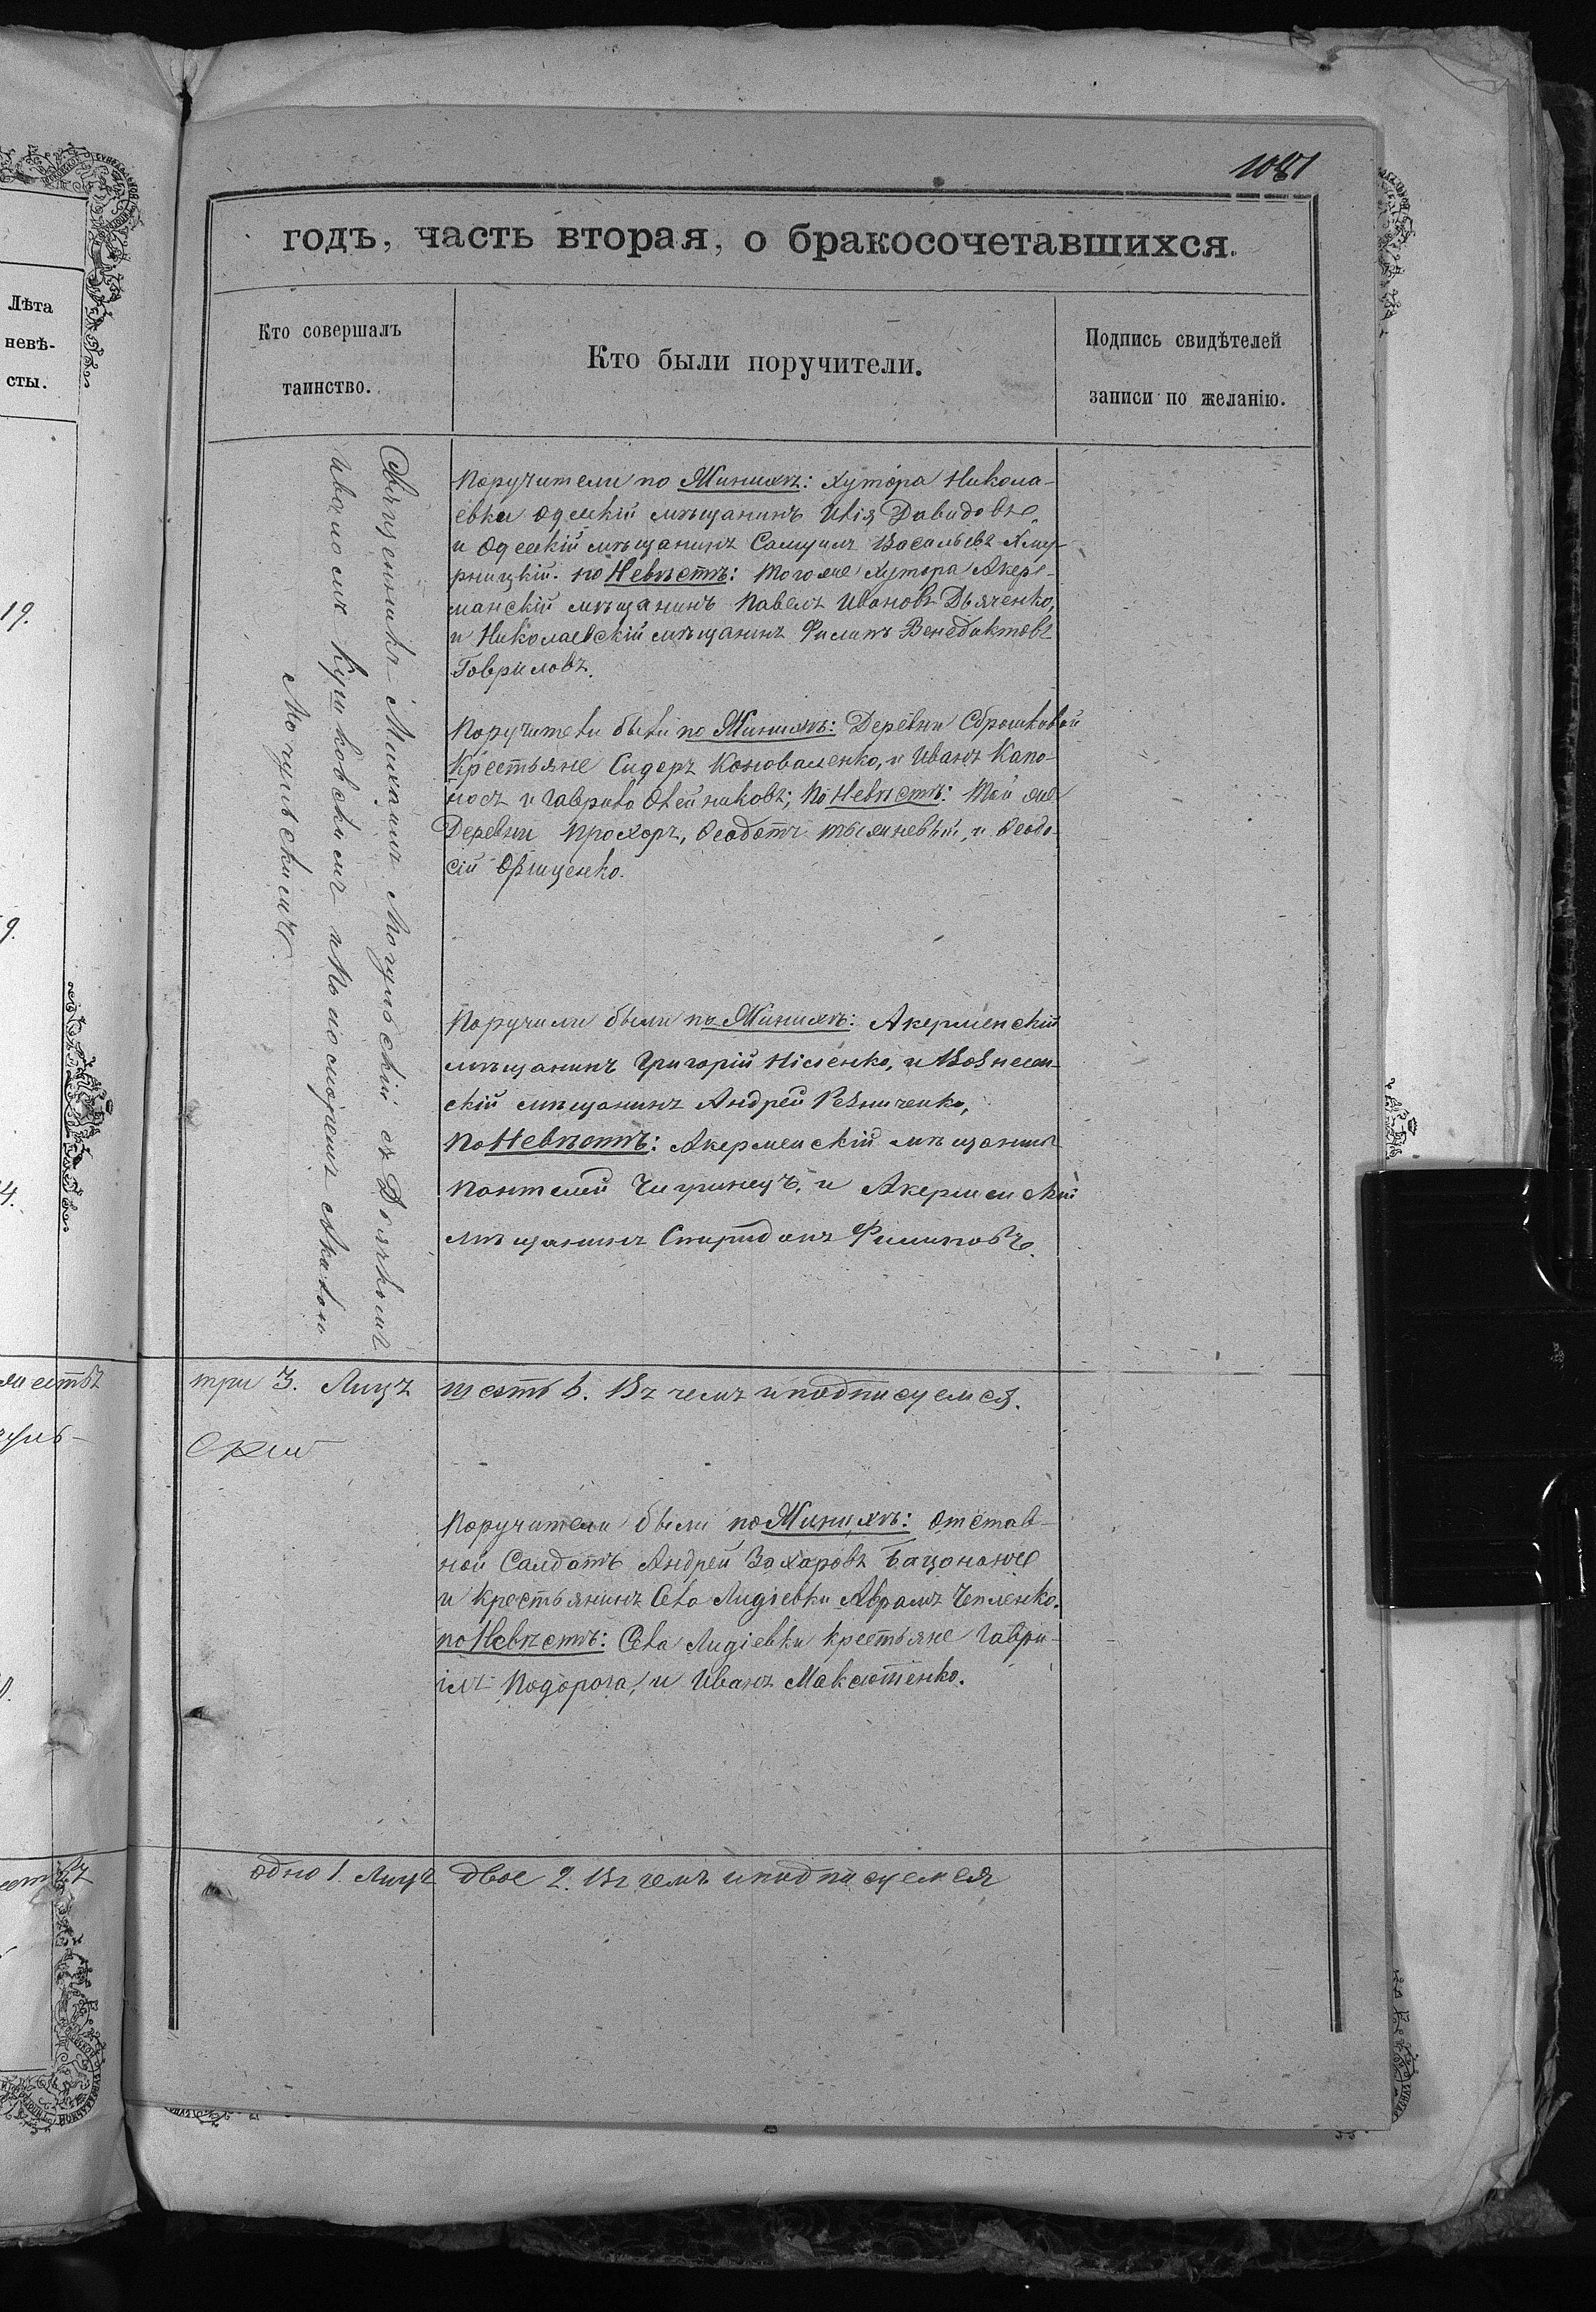 1081
годъ, часть вторая, о бракосочетавшихся.
Лѣта
невѣ-
сты.
Кто совершалъ
таинство.
Кто были поручители.
Подпись свидѣтелей
записи по желанію.
19.
9.
4.
Священникъ Михаилъ Могульскій съ Дьячкомъ
Кушковскимъ и
Могульскимъ.
Поручители по Женихѣ: хутора Никола-
евки Одескій мѣщанинъ Илія Давидовъ
и Одескій мѣщанинъ Самуилъ Васильевъ
по Невѣстѣ: Тогоже хутора Акер-
манскій мѣщанинъ Павелъ Ивановъ Дьяченко,
и Николаевскій мѣщанинъ Филипъ Венедиктовъ
Гавриловъ.
Поручители были по Женихѣ: Деревни
Крестьяне Сидоръ Коноваленко, и Иванъ Капо-
носъ и Гаврило Олейниковъ; По Невѣстѣ: Той же
Деревни Прохоръ, Феодотъ и Феодо-
сій Грищенко.
Поручили были по Женихѣ: Акерменскій
мѣщанинъ Григорій Нісіенко, и Вознесен-
скій мѣщанинъ Андрей Резниченко,
По Невѣстѣ: Акерменскій мѣщанинъ
Пантелей Чигринецъ, и Акерменскій
мѣщанинъ Спиридонъ Филиповъ.
три 3. Лицъ шесть 6. Въ чемъ иподписуемся.
скій
Поручители были по Женихѣ: отстав-
ной Салдатъ Андрей Захаровъ
и Крестьянинъ Села Лидіевки Аврамъ Чепленко.
по Невѣстѣ: Села Лидіевки крестьяне Гаври-
ілъ Подорога, и Иванъ Максютенко.
одно 1. Лицъ двое 2. Въ чемъ иподписуемся